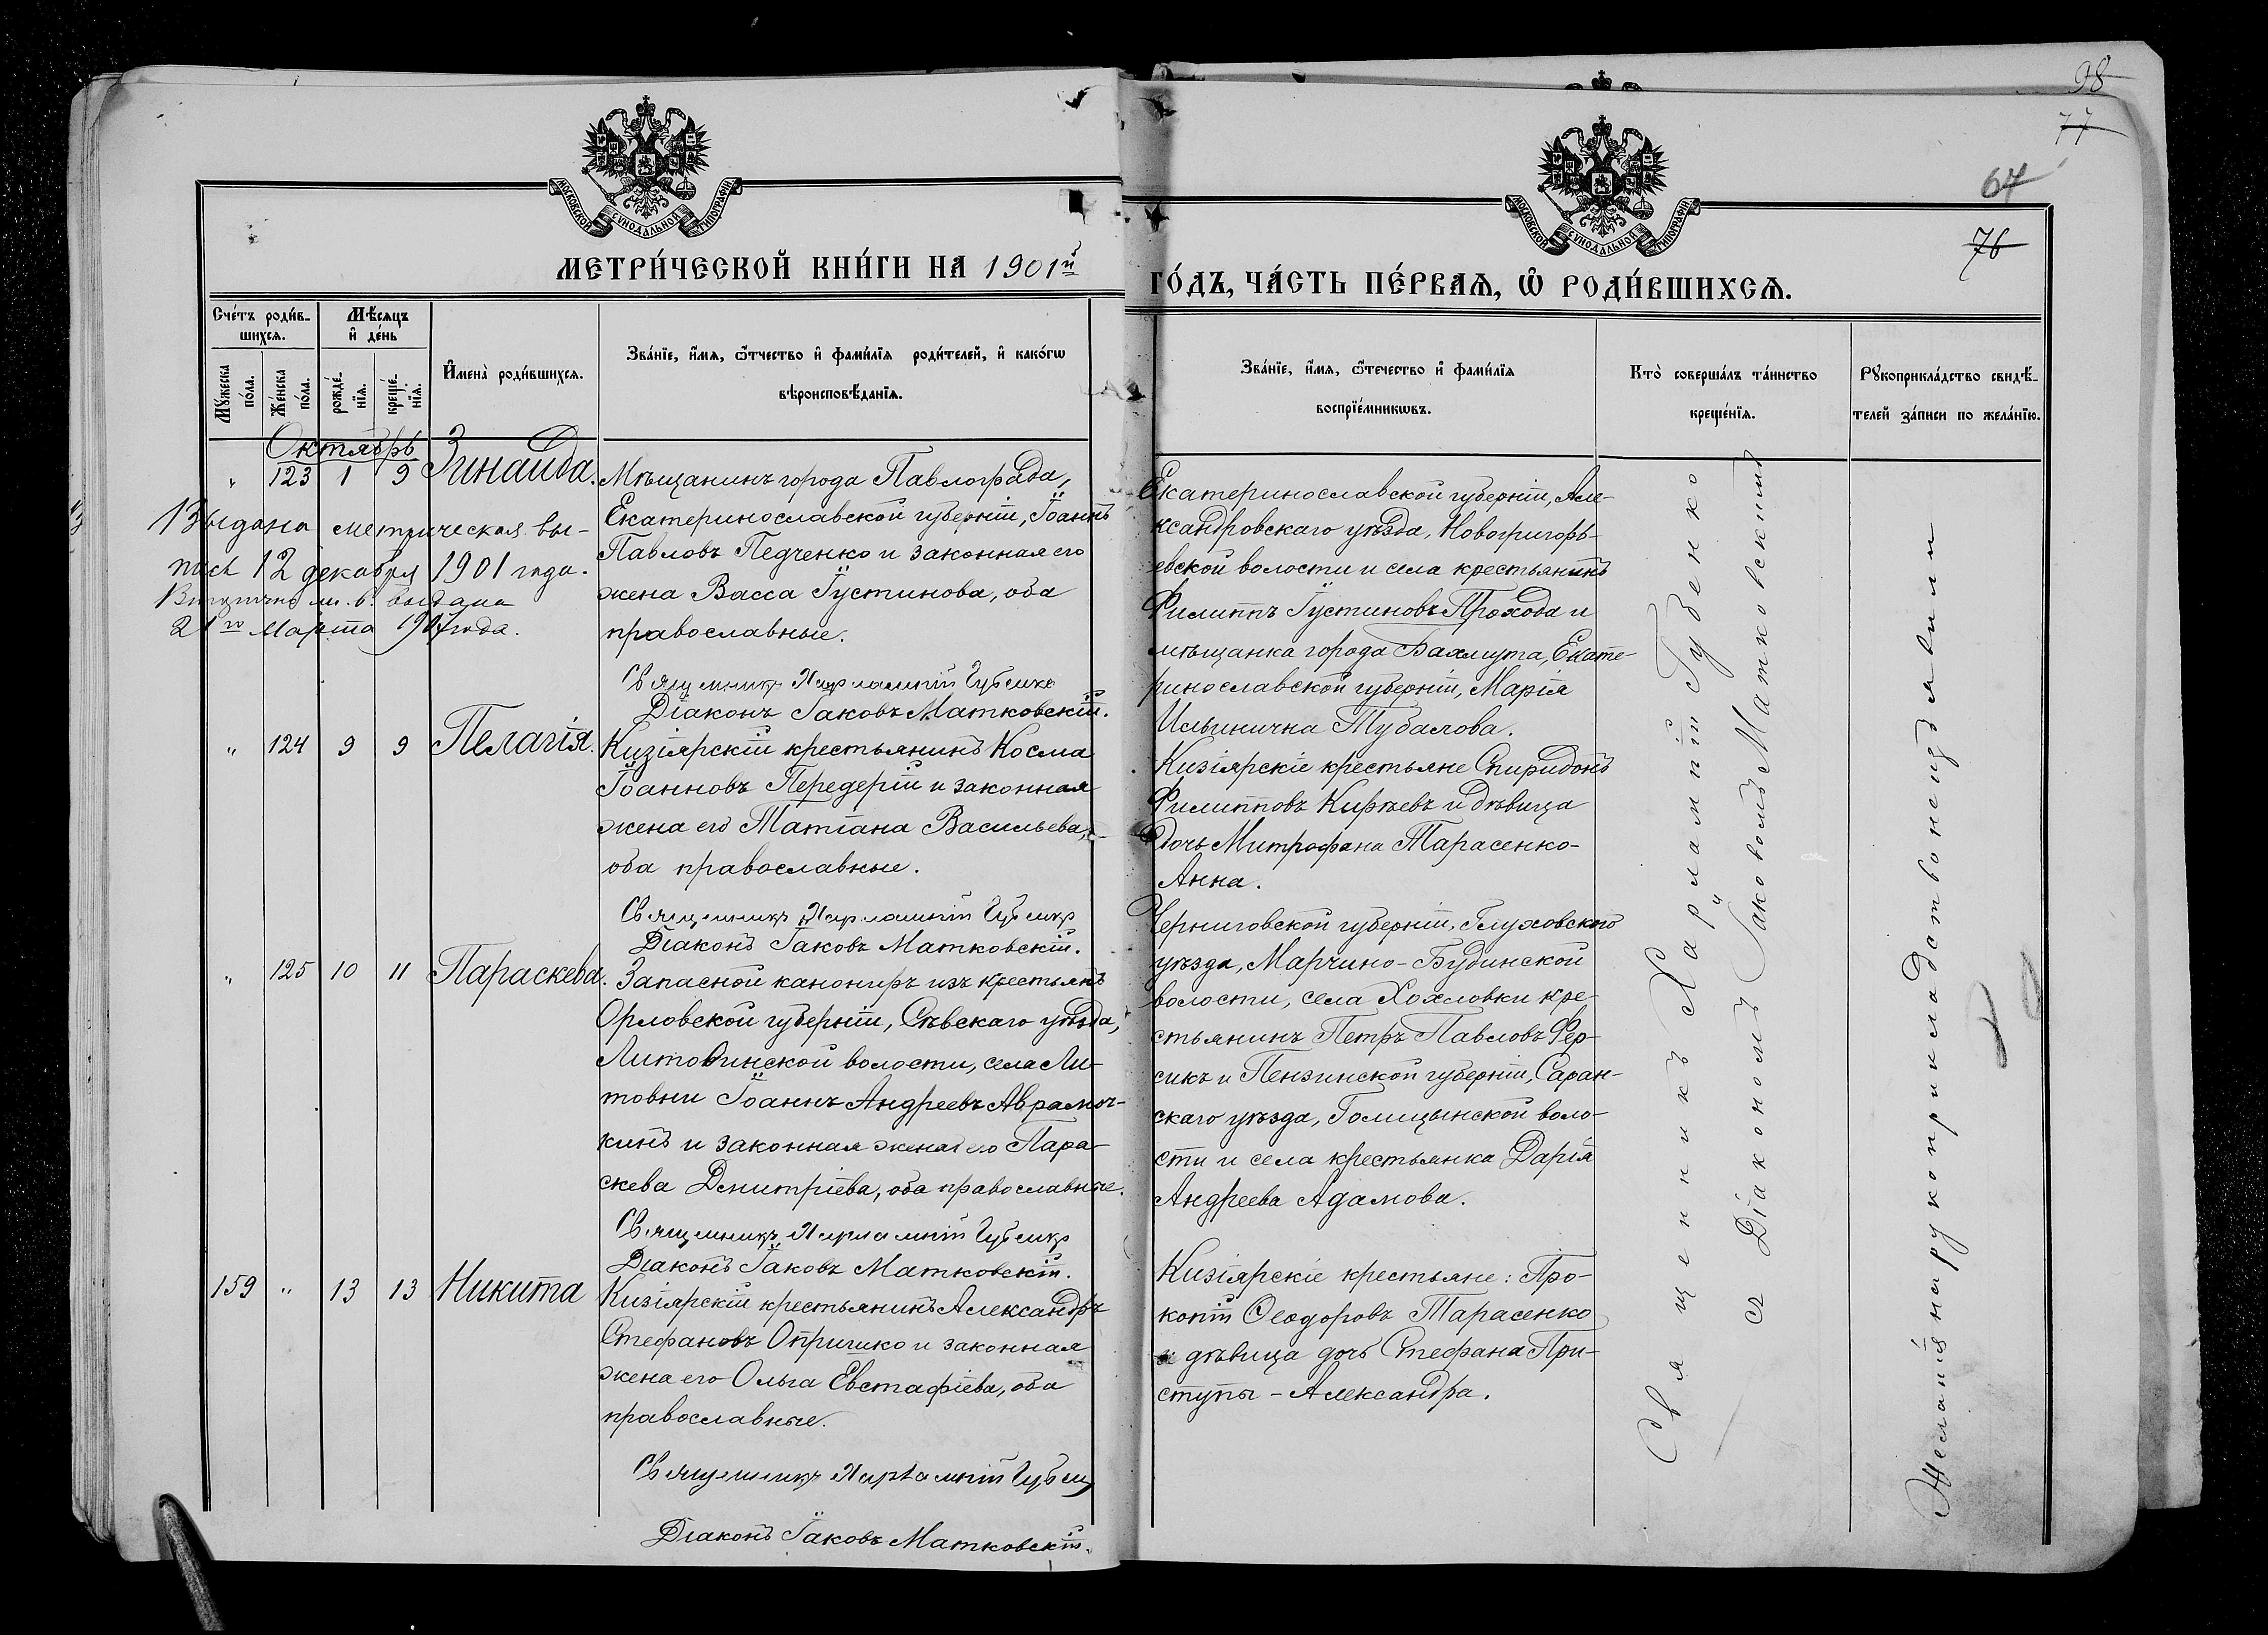 98
77
64
76
МОСКОВСКОЙ СѴНОДАЛЬНОЙ ТИПОГРАФІИ
МОСКОВСКОЙ СѴНОДАЛЬНОЙ ТИПОГРАФІИ
МЕТРИ́ЧЕСКОЙ КНИ́ГИ НА 1901й
ГО́ДЪ, ЧА́СТЬ ПЕ́РВАѦ, Ѡ҆ РОДИ́ВШИХСѦ.
Сче́тъ роди́в-
шихсѧ.
Мꙋ́жеска по́ла.
Же́нска по́ла.
Мѣ́сѧцъ
и҆ де́нь
рожде́-
нїѧ.
креще́-
нїѧ.
И҆мена̀ роди́вшихсѧ.
Зва́нїе, и҆́мѧ, ѻ҆́тчество и҆ фами́лїѧ роди́телей, и҆ како́гѡ
вѣроисповѣ́данїѧ.
Зва́нїе, и҆́мѧ, ѻ҆́течество и҆ фами́лїѧ
воспрїе́мникѡвъ.
Кто̀ соверша́лъ та́инство
креще́нїѧ.
Рꙋкоприкла́дство свидѣ́-
телей за́писи по жела́нїю.
Октябрь
„ 123 1 9 Зинаида.
Выдана метрическая вы-
пись 12 декабря 1901 года.
Вторично м. в. выдана
21го Марта 1917 года.
Мѣщанинъ города Павлограда,
Екатеринославской губерніи, Іоаннъ
Павловъ Педченко и законная его
жена Васса Іустинова, оба
православные.
Священникъ Харлампій Губенко
Діаконъ Іаковъ Матковскій.
Екатеринославской губерніи, Але-
ксандровскаго уѣзда, Новогригорь-
евской волости и села крестьянинъ
Филиппъ Іустиновъ Прохода и
мѣщанка города Бахмута, Екате-
ринославской губерніи, Марія
Ильинична Тубалова.
„ 124 9 9 Пелагія.
Кизіярскій крестьянинъ Косма
Іоанновъ Передерій и законная
жена его Татіана Васильева,
оба православные.
Священникъ Харлампій Губенко
Діаконъ Іаковъ Матковскій.
Кизіярскіе крестьяне Спиридонъ
Филипповъ Кирѣевъ и дѣвица
дочь Митрофана Тарасенко-
Анна.
„ 125 10 11 Параскева.
Запасной канониръ изъ крестьянъ
Орловской губерніи, Сѣвскаго уѣзда,
Литовинской волости, села Ли-
товни Іоаннъ Андреевъ Аврамоч-
кинъ и законная жена его Пара-
скева Димитріева, оба православные.
Священникъ Харлампій Губенко
Діаконъ Іаковъ Матковскій.
Черниговской губерніи, Глуховского
уѣзда, Марчино-Будинской
волости, села Хохловки кре-
стьянинъ Петръ Павловъ Фер-
сикъ и Пензинской губерніи, Саран-
скаго уѣзда, Голицынской воло-
сти и села крестьянка Дарія
Андреева Адамова.
159 „ 13 13 Никита
Кизіярскій крестьянинъ Александръ
Стефановъ Опришко и законная
жена его Ольга Евстафіева, оба
православные.
Священникъ Харлампій Губенко
Діаконъ Іаковъ Матковскій.
Кизіярскіе крестьяне: Про-
копій Ѳеодоровъ Тарасенко
и дѣвица дочь Стефана При-
ступы - Александра.
Священникъ Харлампій Губенко
съ Діакономъ Іаковомъ Матковскимъ
Желанія на рукоприкладство не изъявили